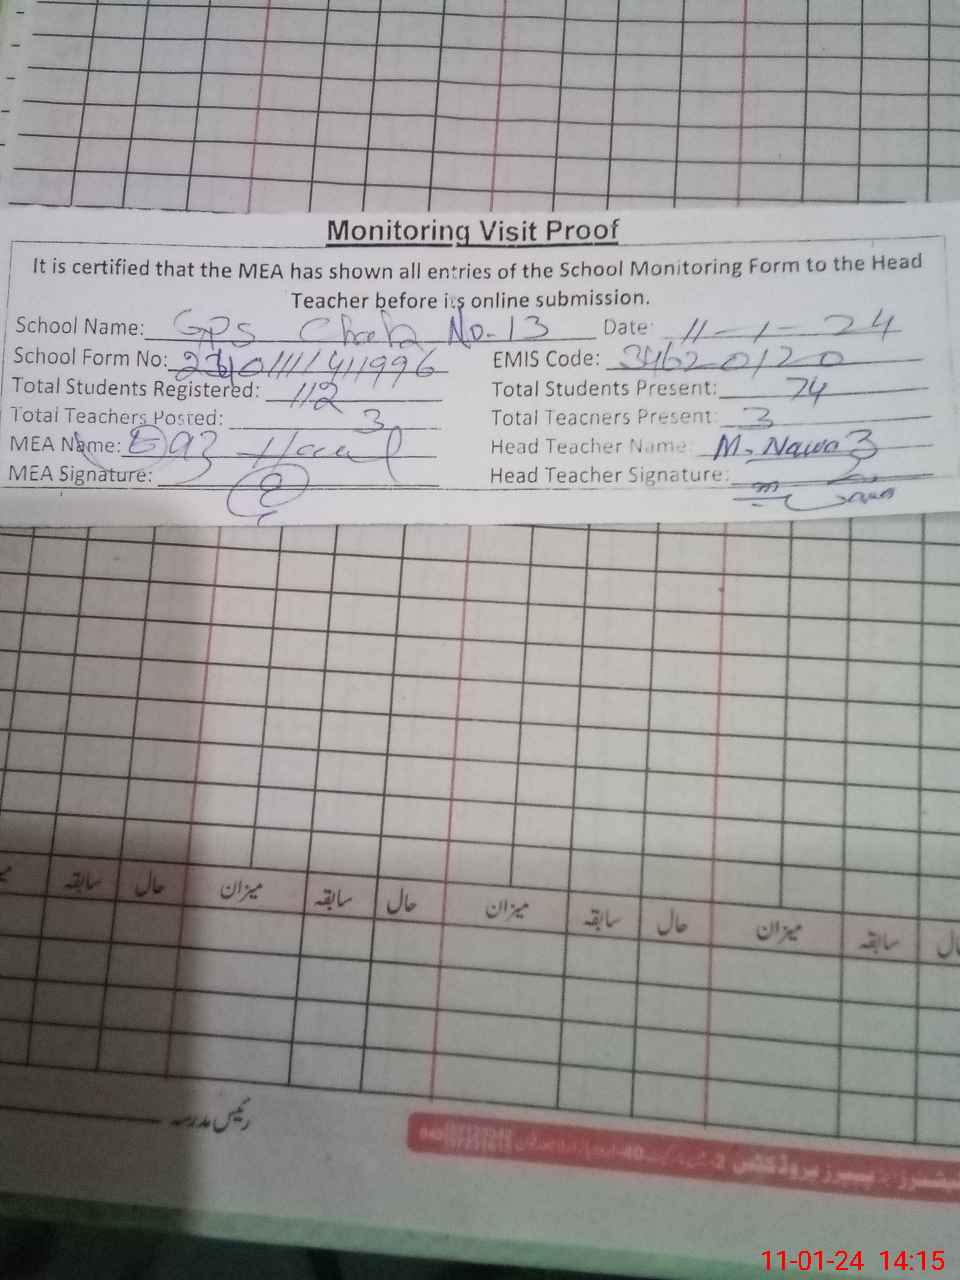 Monitoring Visit Proof
It is certified that the MEA has shown all entries of the School Monitoring Form to the Head
Teacher before its online submission.
School Name: GPS No-13 Date: 11-1-24
School Form No: EMIS Code: 34620120
Total Students Registered: 112 Total Students Present: 74
Total Teachers Posted: 3 Total Teachers Present: 3
MEA Name: Head Teacher Name: M. Nawaz
MEA Signature: Head Teacher Signature:
سابقہ حال میزان سابقہ حال میزان سابقہ حال میزان سابقہ
رئیس مدرسہ
11-01-24 14:15